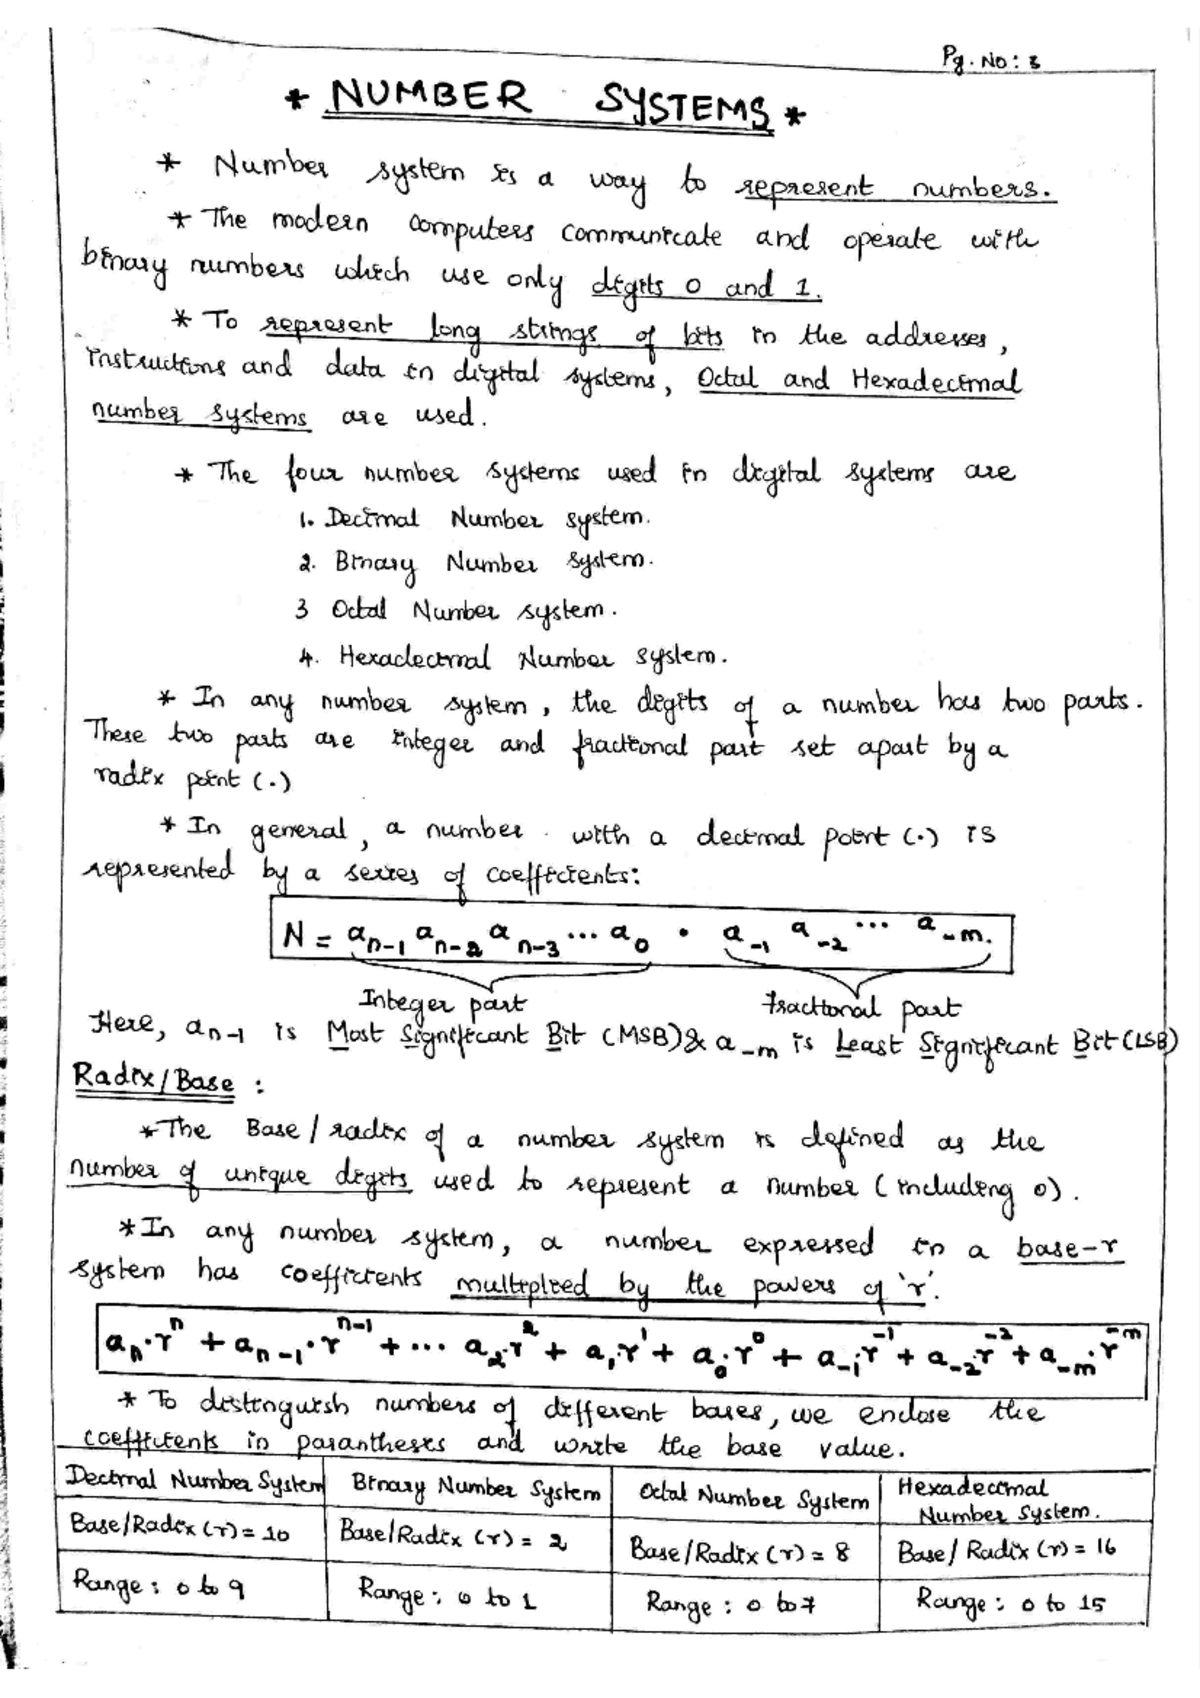 Pg. No: 3
* NUMBER SYSTEMS *
* Number system is a way to represent numbers.
* The modern computers communicate and operate with
binary numbers which use only digits 0 and 1.
* To represent long strings of bits in the addresses,
instructions and data in digital systems, Octal and Hexadecimal
number systems are used.
* The four number systems used in digital systems are
1. Decimal Number system.
2. Binary Number system.
3 Octal Number system.
4. Hexadecimal Number system.
* In any number system, the digits of a number has two parts.
These two parts are integer and fractional part set apart by a
radix point (.)
* In general, a number with a decimal point (.) is
represented by a series of coefficients:
N = aₙ₋₁ aₙ₋₂ aₙ₋₃ ... a₀ . a₋₁ a₋₂ ... a₋ₘ.
Integer part fractional part
Here, aₙ₋₁ is Most Significant Bit (MSB) & a₋ₘ is Least Significant Bit (LSB)
Radix/Base :
* The Base/radix of a number system is defined as the
number of unique digits used to represent a number (including 0).
* In any number system, a number expressed in a base-r
system has coefficients multiplied by the powers of 'r'.
aₙ.rⁿ + aₙ₋₁.rⁿ⁻¹ + ... a₂.r² + a₁.r¹ + a₀.r⁰ + a₋₁.r⁻¹ + a₋₂.r⁻² + a₋ₘ.r⁻ᵐ
* To distinguish numbers of different bases, we enclose the
coefficients in parantheses and write the base value.
Decimal Number System Binary Number System Octal Number System Hexadecimal
Number System.
Base/Radix (r) = 10 Base/Radix (r) = 2 Base/Radix (r) = 8 Base/ Radix (r) = 16
Range : 0 to 9 Range : 0 to 1 Range : 0 to 7 Range : 0 to 15